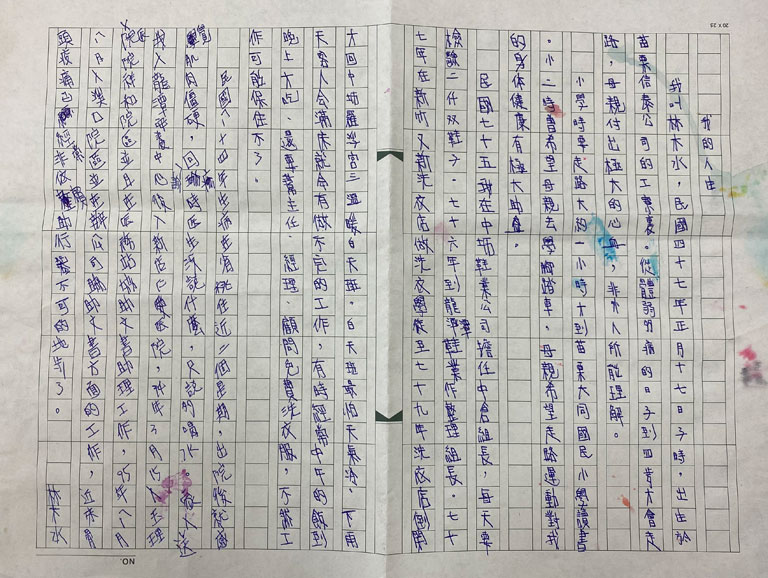 我的人生
我叫林木水，民國四十七年正月十七日子時，出生於
苗栗信泰公司的工寮裏。從體弱多病的日子到四歲才會走
路，母親付出極大的心血，非外人所能理解。
小學時要走路大約一小時才到苗栗大同國民小學讀書
。小二時曾希望母親去學腳踏車，母親希望走路運動對我
的身体健康有極大助益。
民國七十五年在中坜鞋業公司擔任中倉組長，每天要
檢驗二仟双鞋子。七十六年到龍潭鞋業作整理組長。七十
七年在新竹又新洗衣店做洗衣學徒至七十九年洗衣店倒閉
才回中坜羅馬宮三溫暖白天班。白天班最怕天氣冷，下雨
天客人會滿床就會有做不完的工作，有時經常中午的飯到
晚上才吃，還要替主任、經理、顧問免費洗衣服，不然工
作可能保住不了。
民國八十四年生病在宿
住近二個星期，出院後就感
覺肌肉僵硬，回診時医生沒說什麼，只說多喝水，家人送
我入龍潭
中心
入
院，
年3月15
玉理
医院
院
和院區並且在
站協助文書助理工作，95年8月
八日入溪口院區並在辦公司協助文書方面的工作，近來肩
頭疼痛已經非依藥物助行
不可的地步了。
林木水
20 X 25
NO.